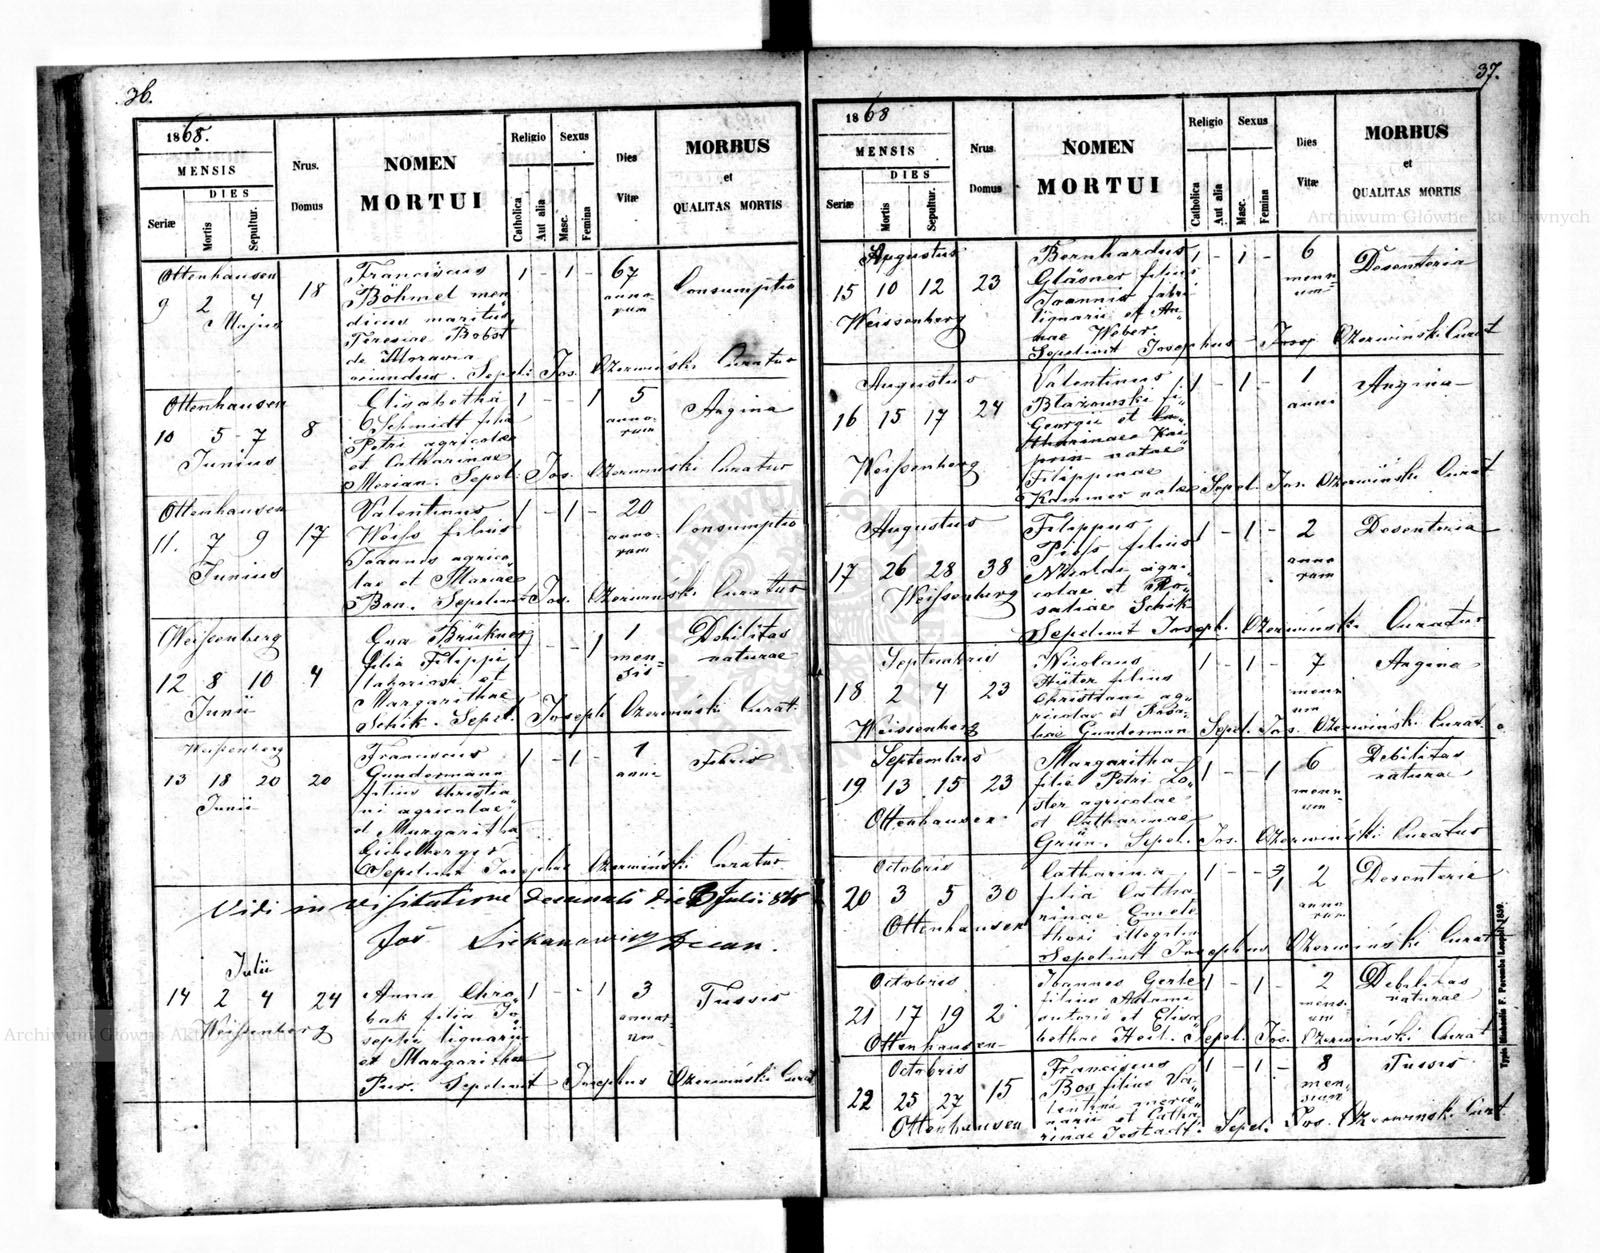 36.
1868.
MENSIS
DIES
Seriæ
Mortis
Sepultur.
Nrus.
Domus
NOMEN
MORTUI
Religio
Catholica
Aut alia
Sexus
Masc.
Femina
Dies
Vitæ
MORBUS
et
QUALITAS MORTIS
Ottenhausen
9 2 4 18
Majus
Franciscus
Böhmel men
dicus maritus
Teresiae Probst
de Moravia
oriundus. Sepel: Jos. Czerwiński Curatus
1 - 1 -
67
anno-
rum
Consumptio
Ottenhausen
10 5 - 7 8
Junius
Elisabetha
Schmidt filia
Petri agricolae
et Catharinae
Merian. Sepel. Jos. Czerwiński Curatus
1 - - 1
5
anno-
rum
Angina
Ottenhausen
11. 7 9 17
Junius
Valentinus
Weiss filius
Joannis agrico-
lae et Mariae
Bon. Sepelivit Jos. Czerwiński Curatus
1 - 1 -
20
anno-
rum
Consumptio
Weissenberg
12 8 10 4
Junii
Eva Brükner
filia Filippi
laboriosi et
Margarithae
Schik. Sepel. Joseph Czerwiński Curat.
1 - - 1
1
men=
sis
Debilitas
naturae
Weissenberg
13 18 20 20
Junii
Franciscus
Gundermann
filius Christia
ni agricolae
et Margaritha
Eichelberger
Sepelivit Josephus Czerwiński Curatus
1 - 1 -
1
anni
Febris
Vidi in visitatione decanali die Julii 868
Jos Decan.
Julii
14 2 4 24
Weissenberg
Anna Chro-
bak filia Jo-
sephi lignarii
et Margaritha
Pur. Sepelivit Josephus Czerwiński Curat
1 - - 1
3
annor-
um
Tussis
37.
1868
MENSIS
DIES
Seriæ
Mortis
Sepultur.
Nrus.
Domus
NOMEN
MORTUI
Religio
Catholica
Aut alia
Sexus
Masc.
Femina
Dies
Vitæ
MORBUS
et
QUALITAS MORTIS
Augustus
15 10 12 23
Weissenberg
Bernhardus
Gläsner filius
Joannis fabri
lignarii et An-
nae Weber.
Sepelivit Josephus Czerwiński Curat
1 - 1 -
6
menn
um
Desenteria
Augustus
16 15 17 24
Weissenberg
Valentinus
Blazowski fi-
Georgii et Ca-
tharinae
natae
Filippinae
Kammer natae Sepel. Jos. Czerwiński Curat
1 - 1 -
1
anni
Angina
Augustus
17 26 28 38
Weissenberg
Filippus
Piss filius
Nikolai agri-
colae et Ro-
saliae Schik
Sepelivit Joseph. Czerwiński Curatus
1 - 1 -
2
anno
rum
Desenteria
Septembris
18 2 4 23
Weissenberg
Nicolaus
Hüter filius
Christiani ag-
ricolae et Rosa-
liae Gunderman Sepel. Jos. Czerwiński Curat.
1 - 1 -
7
menn
um
Angina
Septembris
19 13 15 23
Ottenhausen
Margaritha
filia Petri Lo-
ster agricolae
et Catharinae
Grün. Sepel. Jos. Czerwiński Curatus
1 - - 1
6
menn-
um
Debilitas
naturae
Octobris
20 3 5 30
Ottenhausen
Catharina
filia Catha
rinae
illegitim
Sepelivit Josephus Czerwiński Curat
1 - - 1
2
anno
rum
Desenteria
Octobris
21 17 19 2
Ottenhausen
Joannes Gerle
filius Adami
et Elisa
bethae Heil. Sepel. Jos. Czerwiński Curat
1 - 1 -
2
mens-
um
Debilitas
naturae
Octobris
22 25 27 15
Ottenhausen
Franciscus
Bos filius Va-
lentini merce-
narii et Catha-
rinae Jostadt. Sepel. Jos. Czerwiński Curat
1 - 1 -
8
men-
sium
Tussis
Typis Michaelis F. Poremba Leopoli 1859.
Archiwum Główne Akt Dawnych
Archiwum Główne Akt Dawnych